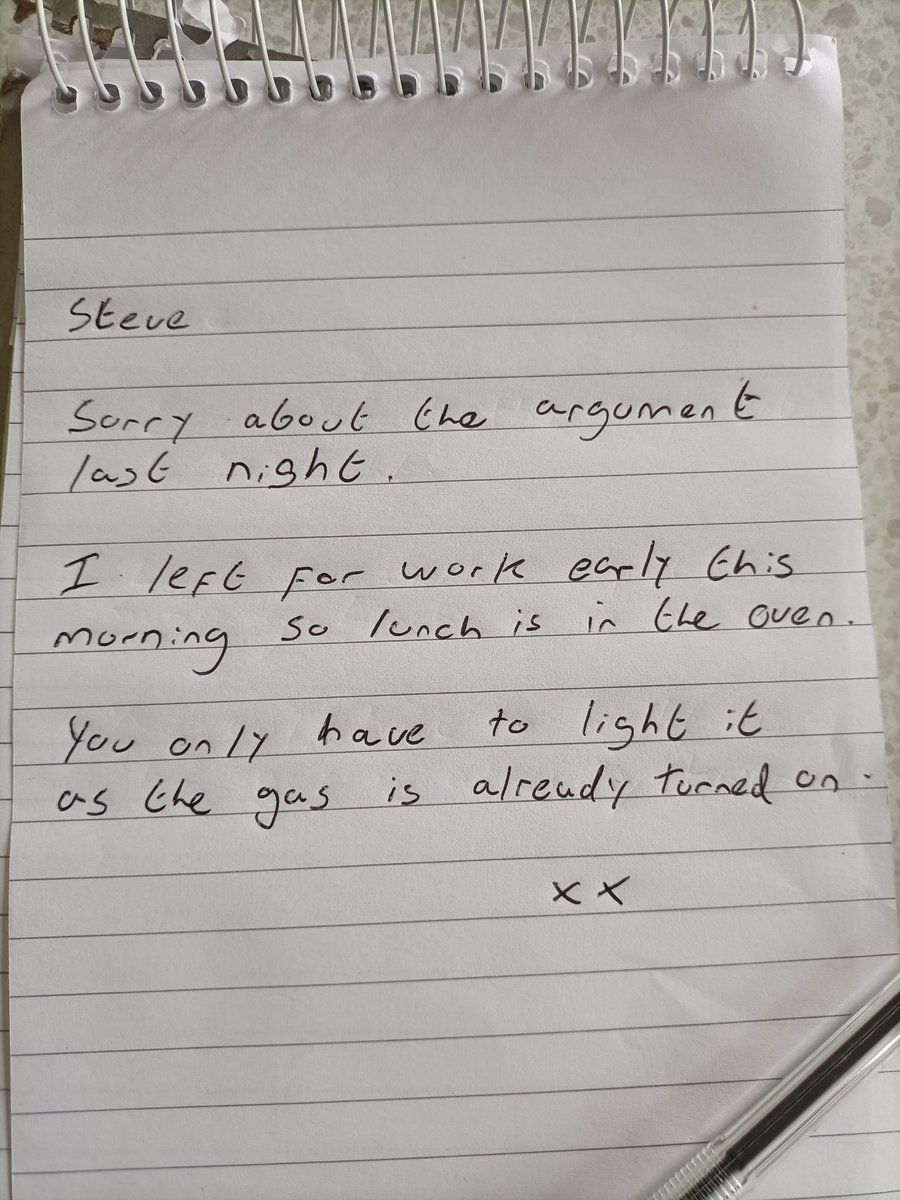 Steve
Sorry about the argument
last night.
I left for work early this
morning so lunch is in the oven.
You only have to light it
as the gas is already turned on.
x x